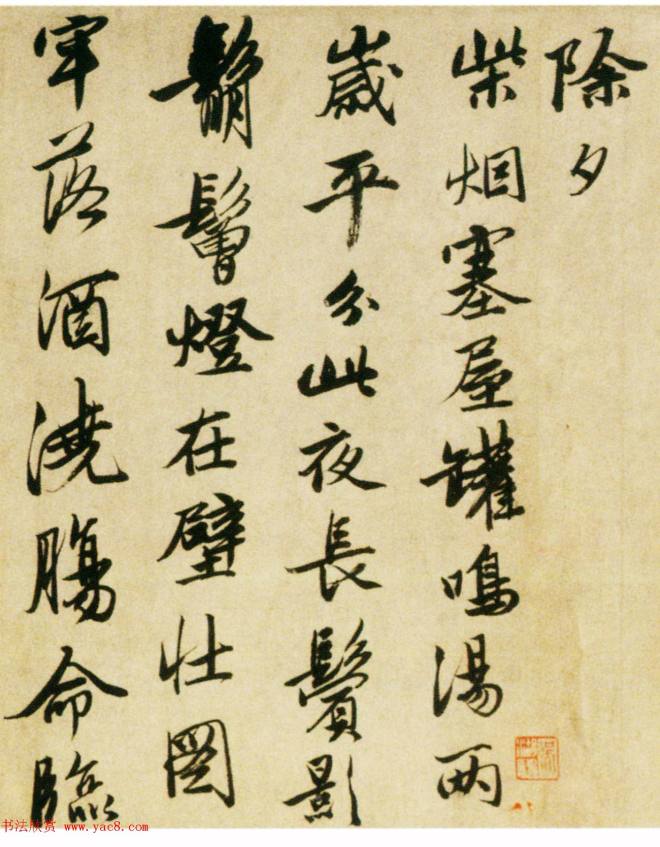 除夕
柴烟塞屋罐鳴湯两
歲平分此夜長鬢影
鬅鬙燈在壁壮圖
牢落酒澆腸命臨
书法欣赏 www.yac8.com